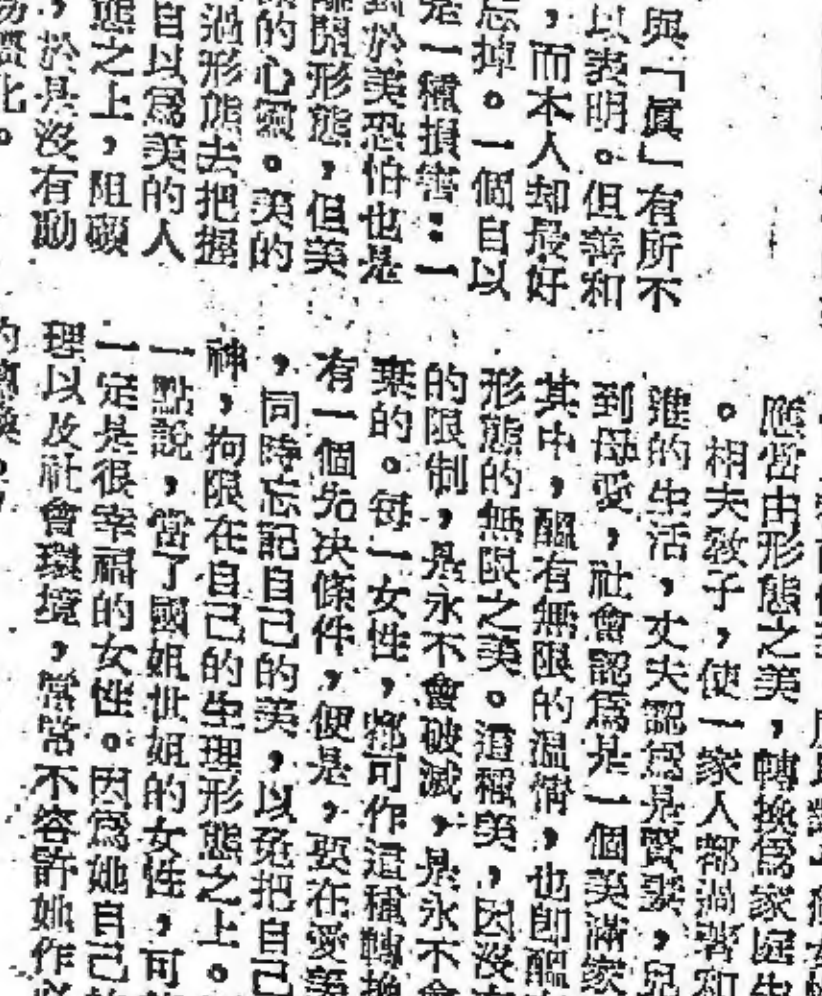 與「真」有所不
以表明。但善和
，而本人却最好
忘掉。一個自以
是一種損害：一
對於美恐怕也是
離開形態，但美
的心靈。美的
過形態去把握
自以爲美的人
態之上，阻礙
，於是沒有勸
化。
應當由形態之美，轉換爲家庭生
。相夫敎子，使一家人都過著和
進的生活，丈夫認爲是賢妻，兒
到母愛，社會認爲是一個美滿家
其中，醞有無限的溫情，也卽醞
形態的無限之美。這種美，因沒
的限制，是永不會破滅，是永不會
棄的。每一女性，都可作這種轉換
有一個先决條件，便是，要在愛美
，同時忘記自己的美，以免把自己
神，拘限在自己的生理形態之上。
一點說，當了國姐世姐的女性，可
一定是很幸福的女性。因爲她自己
理以及社會環境，常常不容許她作
的轉換。